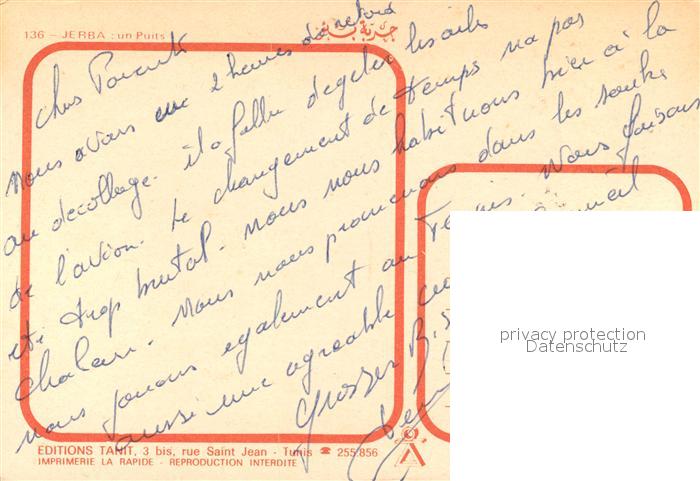 136 – JERBA : un Puits
جربة بئر
Chers Parents
Nous avons eu 2 heures de retard
au décollage. il a fallu dégeler les ailes
de l'avion. Le changement de temps n'a pas
été trop brutal. Nous nous habituons bien à la
chaleur. Nous nous promenons dans les souks
nous jouons également au Tennis. Nous faisons
aussi une agréable
Grosses B
privacy protection
Datenschutz
EDITIONS TANIT, 3 bis, rue Saint Jean - Tunis ☎ 255.856
IMPRIMERIE LA RAPIDE - REPRODUCTION INTERDITE